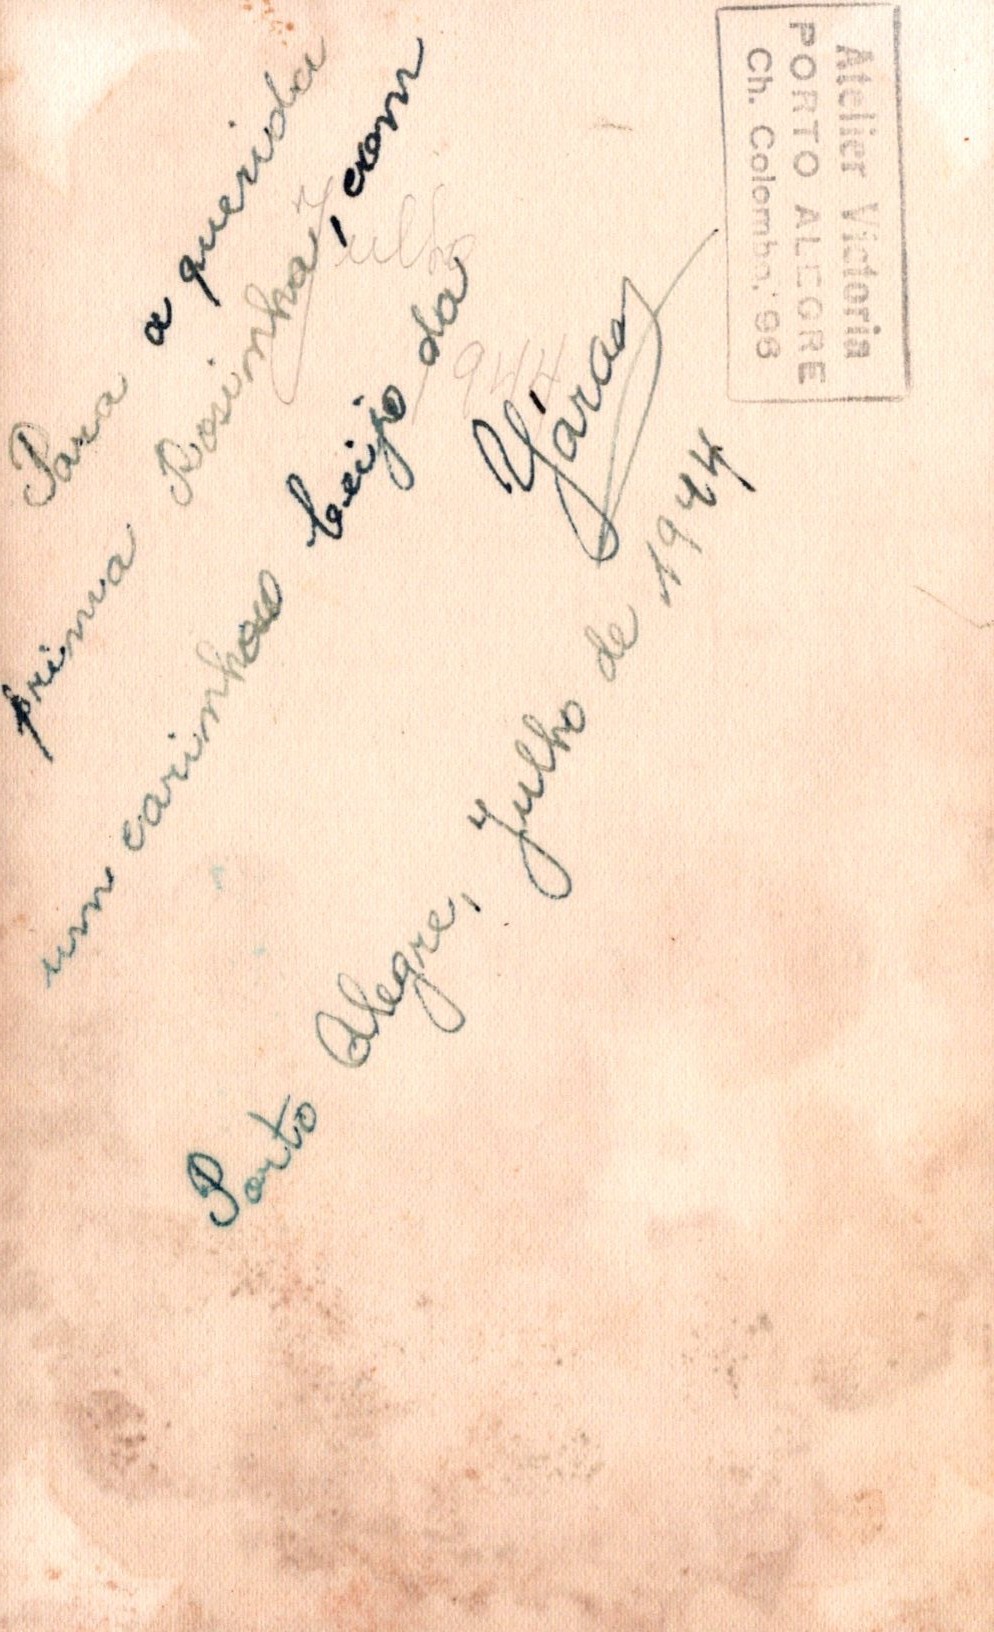 Para a querida
prima Rosinha, com
um carinhoso beijo da
Yára
Porto Alegre, Julho de 1944
Julho
1944
Atelier Victoria
PORTO ALEGRE
Ch. Colombo, 98